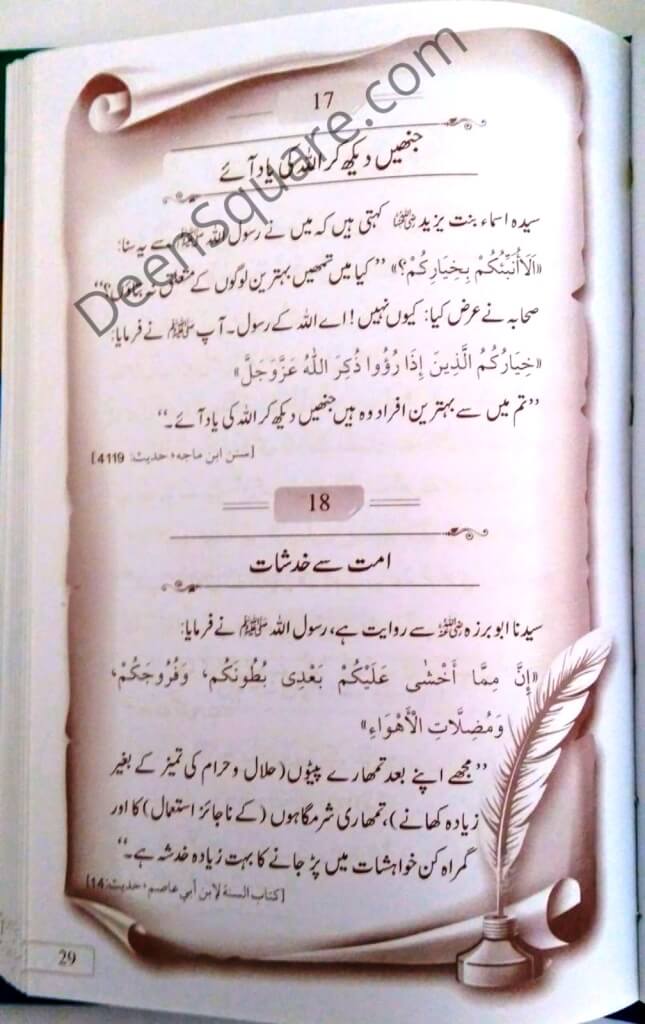 17
جنھیں دیکھ کر اللہ کی یاد آئے
سیدہ اسماء بنت یزید رضی اللہ عنہا کہتی ہیں کہ میں نے رسول اللہ ﷺ سے یہ سنا:
«اَلَاأُنَبِّئُكُمْ بِخِيَارِكُمْ؟» ’’کیا میں تمھیں بہترین لوگوں کے متعلق نہ بتاؤں؟‘‘
صحابہ نے عرض کیا: کیوں نہیں! اے اللہ کے رسول۔ آپ ﷺ نے فرمایا:
«خِيَارُكُمُ الَّذِينَ إِذَا رُؤُوا ذُكِرَ اللّٰهُ عَزَّوَجَلَّ»
’’تم میں سے بہترین افراد وہ ہیں جنھیں دیکھ کر اللہ کی یاد آئے۔‘‘
[سنن ابن ماجه، حديث: 4119]
18
امت سے خدشات
سیدنا ابو برزہ رضی اللہ عنہ سے روایت ہے، رسول اللہ ﷺ نے فرمایا:
«إِنَّ مِمَّا أَخْشٰى عَلَيْكُمْ بَعْدِي بُطُونَكُم، وَفُرُوجَكُمْ،
وَمُضِلَّاتِ الْأَهْوَاءِ»
’’مجھے اپنے بعد تمھارے پیٹوں (حلال و حرام کی تمیز کے بغیر
زیادہ کھانے)، تمھاری شرمگاہوں (کے ناجائز استعمال) کا اور
گمراہ کن خواہشات میں پڑ جانے کا بہت زیادہ خدشہ ہے۔‘‘
[كتاب السنة لابن أبي عاصم، حديث: 14]
29
DeenSquare.com